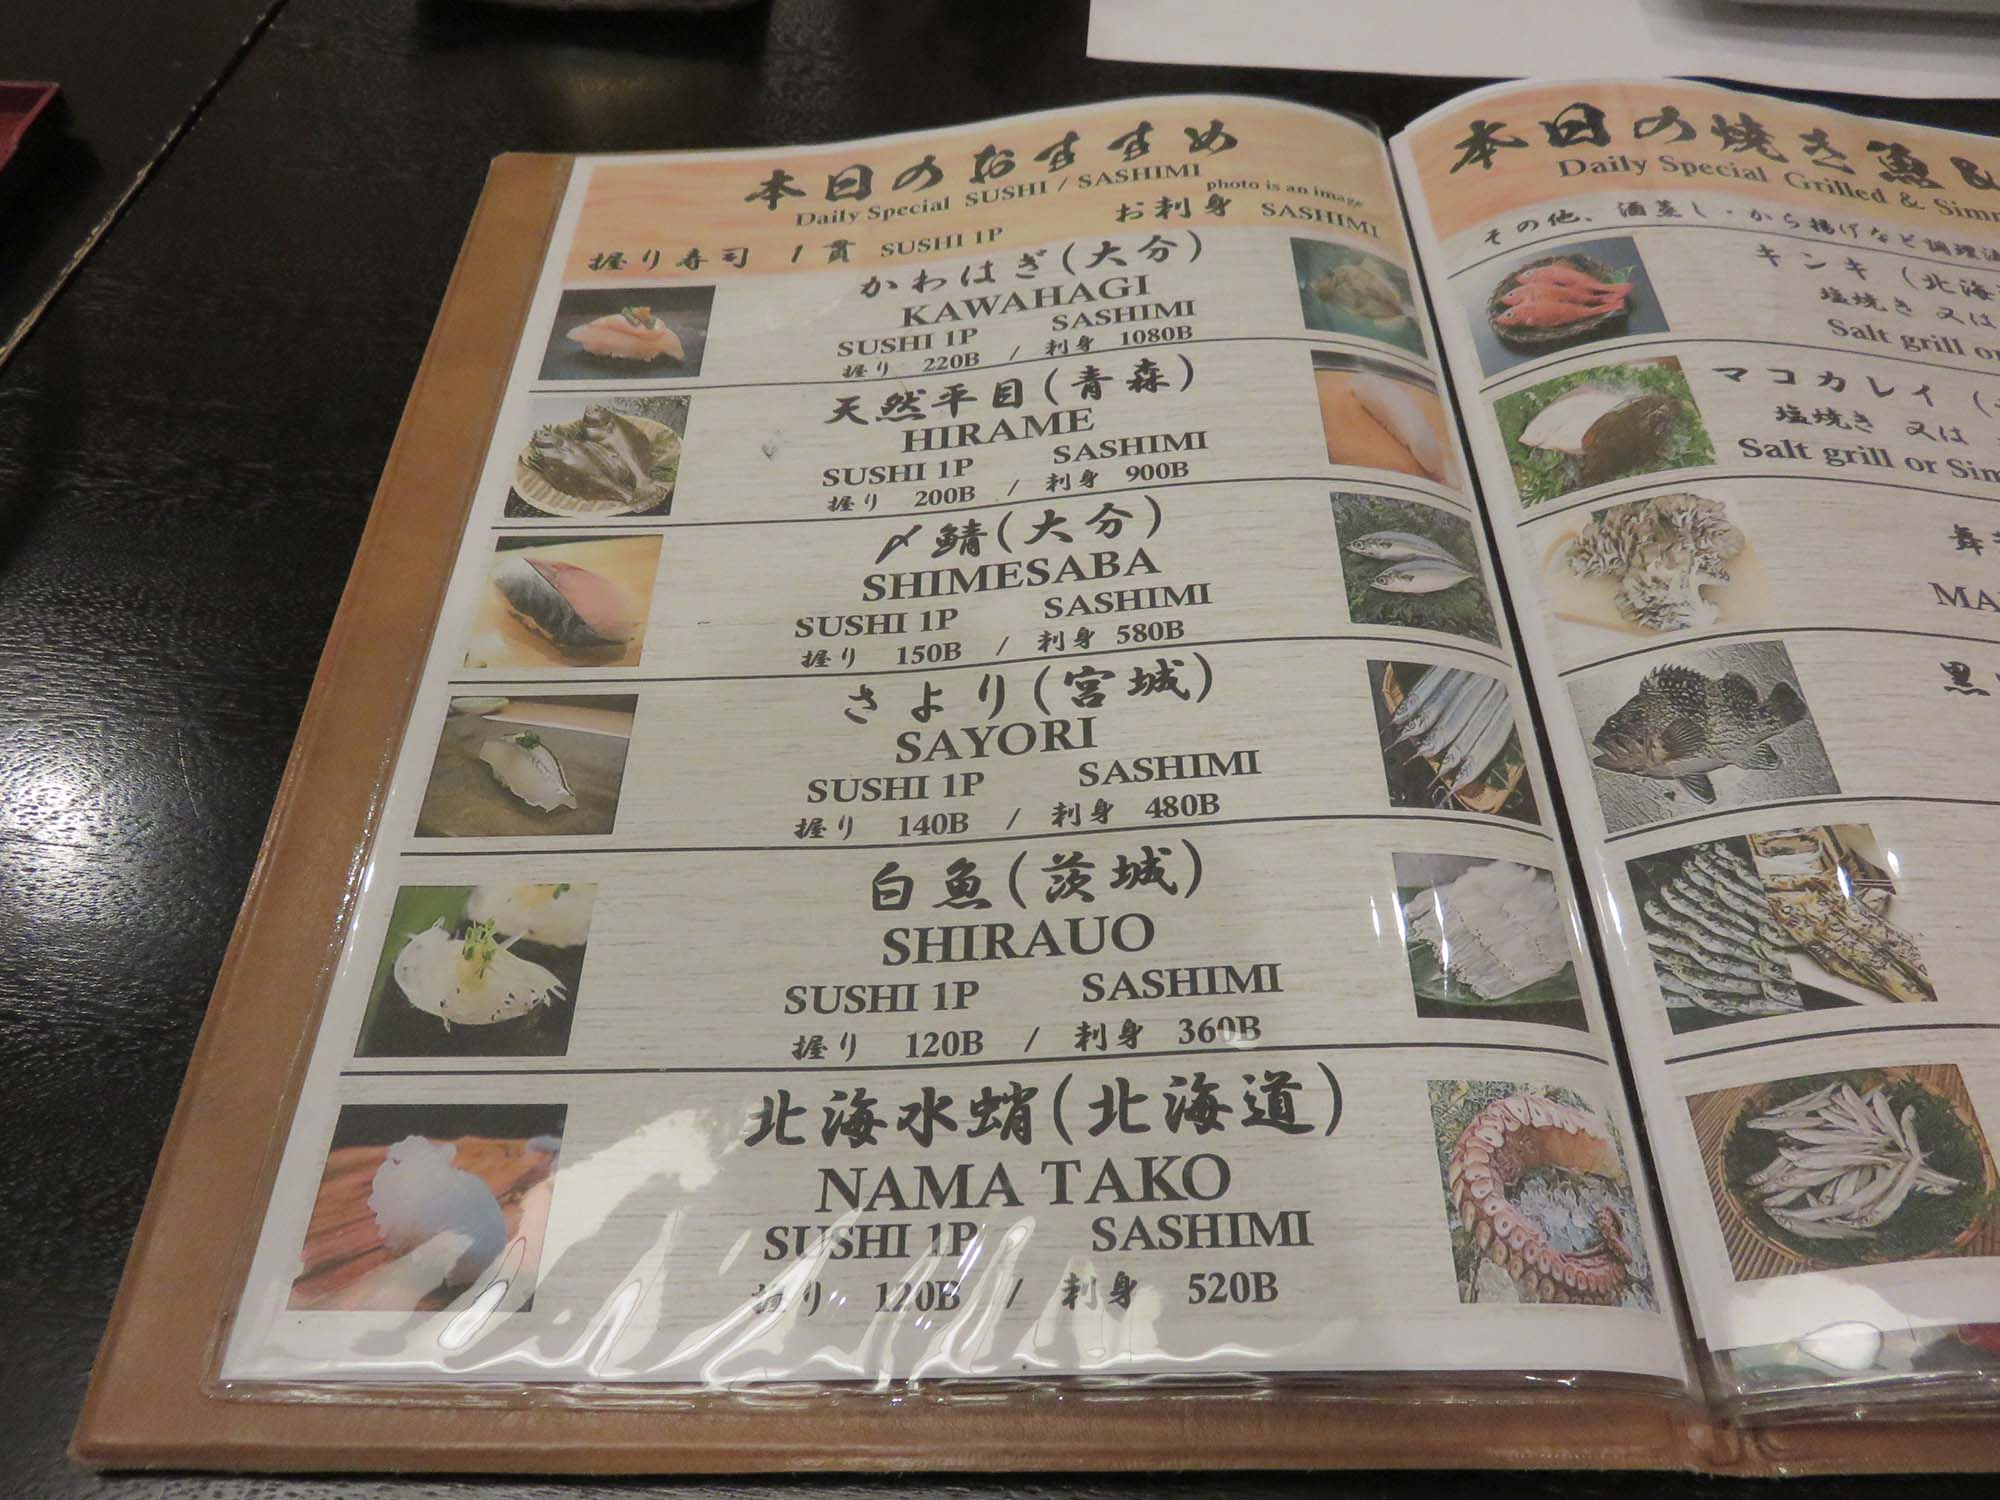 本日のおすすめ
Daily Special SUSHI / SASHIMI
photo is an image
握り寿司 1貫 SUSHI 1P お刺身 SASHIMI
かわはぎ(大分)
KAWAHAGI
SUSHI 1P SASHIMI
握り 220B / 刺身 1080B
天然平目(青森)
HIRAME
SUSHI 1P SASHIMI
握り 200B / 刺身 900B
〆鯖(大分)
SHIMESABA
SUSHI 1P SASHIMI
握り 150B / 刺身 580B
さより(宮城)
SAYORI
SUSHI 1P SASHIMI
握り 140B / 刺身 480B
白魚(茨城)
SHIRAUO
SUSHI 1P SASHIMI
握り 120B / 刺身 360B
北海水蛸(北海道)
NAMA TAKO
SUSHI 1P SASHIMI
握り 120B / 刺身 520B
本日の焼き魚&
Daily Special Grilled & Simm
その他、酒蒸し・から揚げなど調理法
キンキ(北海
塩焼き 又は
Salt grill or
マコカレイ(
塩焼き 又は
Salt grill or Sim
舞
MA
黒